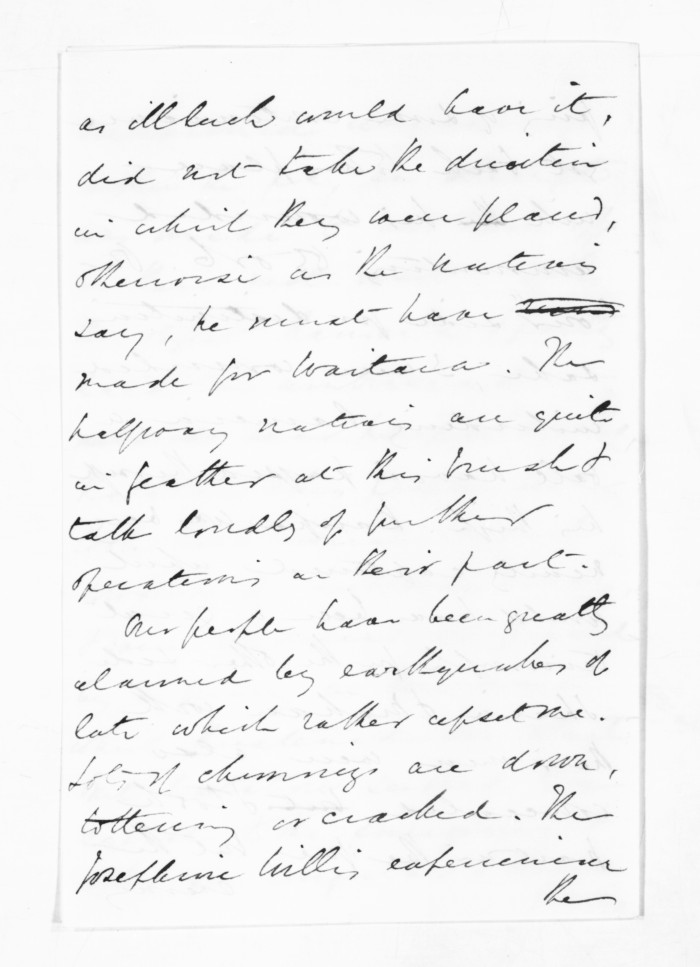 as ill luck would have it,
did not take the direction
in which they were placed,
otherwise as the natives
say, he must have
made for Waitara. The
halfway natives are quite
in feather at this brush &
talk loudly of further
operations on their part.
Our people have been greatly
alarmed by earthquakes of
late which rather upset me.
Lots of chimnies are down,
tottering or cracked. The
Josephine Willis experiences
the